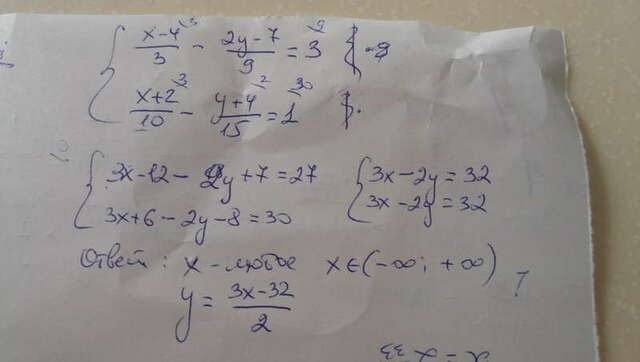 { (x-4)/3 \3 - (2y-7)/9 = 3 \9 | ·9
(x+2)/10 \3 - (y+4)/15 \2 = 1 \30
{ 3x-12-2y+7=27 { 3x-2y=32
3x+6-2y-8=30 3x-2y=32
Ответ: x-любое x∈(-∞; +∞)
y = (3x-32)/2 ?